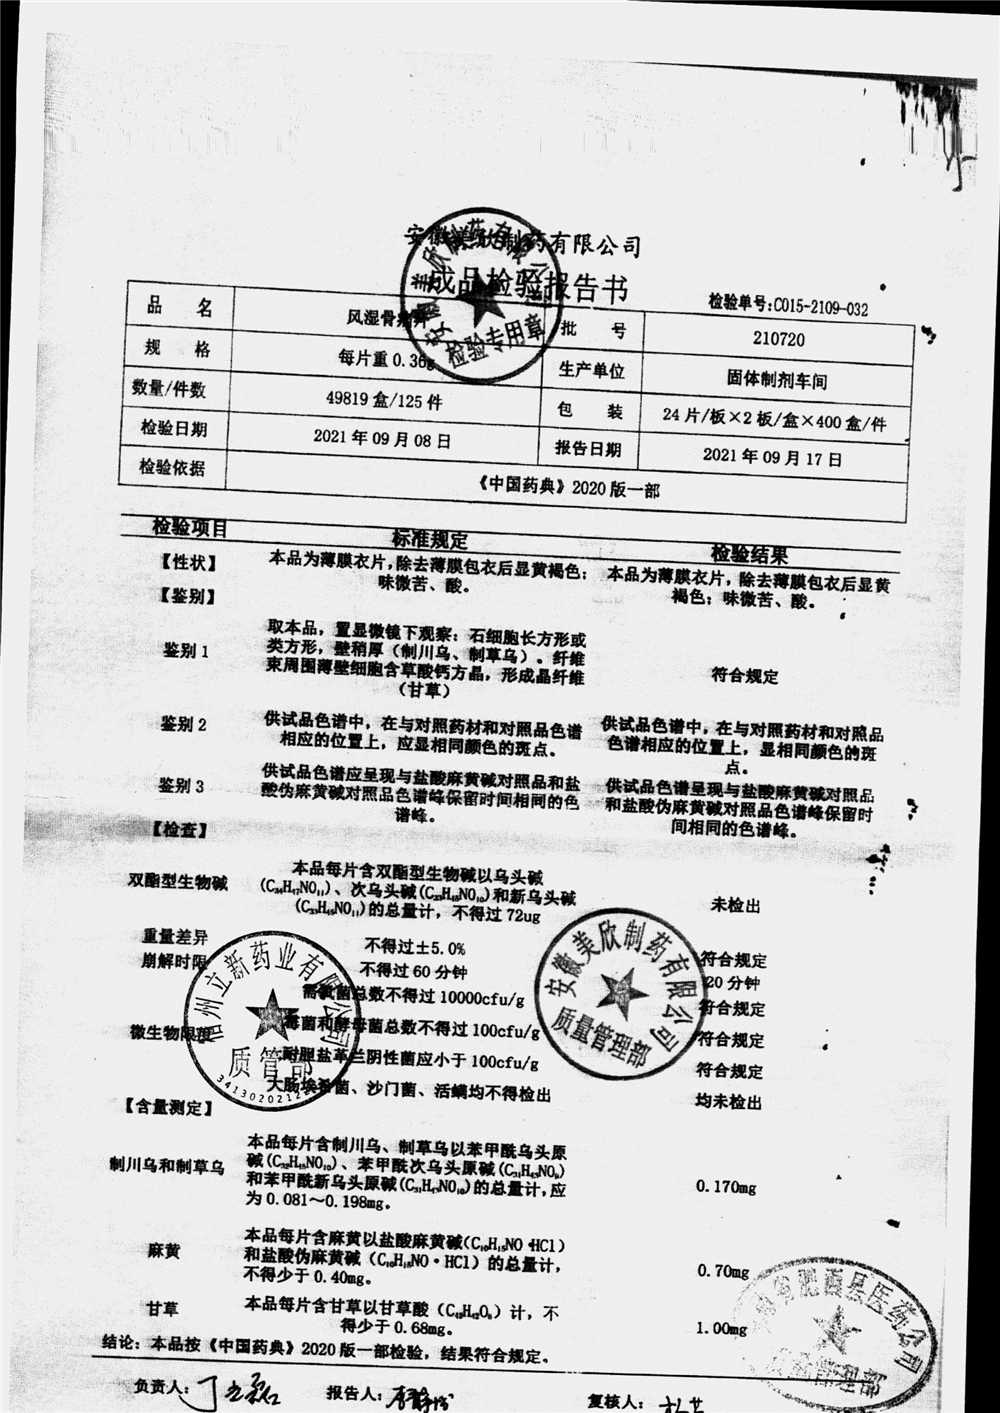 安徽美欣制药有限公司
成品检验报告书
检验单号:C015-2109-032
品 名 风湿骨痛片 批 号 210720
规 格 每片重 0.36g 生产单位 固体制剂车间
数量/件数 49819 盒/125 件 包 装 24 片/板×2 板/盒×400 盒/件
检验日期 2021 年 09 月 08 日 报告日期 2021 年 09 月 17 日
检验依据 《中国药典》2020 版一部
检验项目 标准规定 检验结果
【性状】 本品为薄膜衣片,除去薄膜包衣后显黄褐色; 本品为薄膜衣片,除去薄膜包衣后显黄
味微苦、酸。 褐色;味微苦、酸。
【鉴别】
鉴别 1 取本品,置显微镜下观察:石细胞长方形或
类方形,壁稍厚(制川乌、制草乌)。纤维
束周围薄壁细胞含草酸钙方晶,形成晶纤维 符合规定
(甘草)
鉴别 2 供试品色谱中,在与对照药材和对照品色谱 供试品色谱中,在与对照药材和对照品
相应的位置上,应显相同颜色的斑点。 色谱相应的位置上,显相同颜色的斑
点。
鉴别 3 供试品色谱应呈现与盐酸麻黄碱对照品和盐 供试品色谱呈现与盐酸麻黄碱对照品
酸伪麻黄碱对照品色谱峰保留时间相同的色 和盐酸伪麻黄碱对照品色谱峰保留时
谱峰。 间相同的色谱峰。
【检查】
双酯型生物碱 本品每片含双酯型生物碱以乌头碱
(C34H47NO11)、次乌头碱(C33H45NO10)和新乌头碱 未检出
(C33H45NO11)的总量计,不得过 72ug
重量差异 不得过±5.0% 符合规定
崩解时限 不得过 60 分钟 20 分钟
微生物限度 需氧菌总数不得过 10000cfu/g 符合规定
霉菌和酵母菌总数不得过 100cfu/g 符合规定
耐胆盐革兰阴性菌应小于 100cfu/g 符合规定
大肠埃希菌、沙门菌、活螨均不得检出 均未检出
【含量测定】
制川乌和制草乌 本品每片含制川乌、制草乌以苯甲酰乌头原
碱(C32H45NO10)、苯甲酰次乌头原碱(C31H43NO9)
和苯甲酰新乌头原碱(C31H43NO10)的总量计,应 0.170mg
为 0.081～0.198mg。
麻黄 本品每片含麻黄以盐酸麻黄碱(C10H15NO·HCl)
和盐酸伪麻黄碱(C10H15NO·HCl)的总量计, 0.70mg
不得少于 0.40mg。
甘草 本品每片含甘草以甘草酸(C42H62O16)计,不
得少于 0.68mg。 1.00mg
结论:本品按《中国药典》2020 版一部检验,结果符合规定。
负责人: 报告人: 复核人:
安徽美欣制药有限公司
检验专用章
宿州立新药业有限公司
质管部
安徽美欣制药有限公司
质量管理部
肥西县医药公司
质量管理部